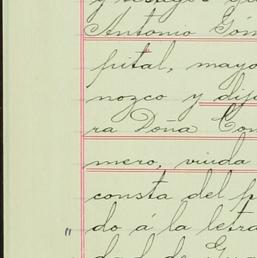 y
Antonio Góm
pital, mayo
nozco y dij
ra Doña Con
mero, viuda
consta del p
" do á la letra
dad de Gua